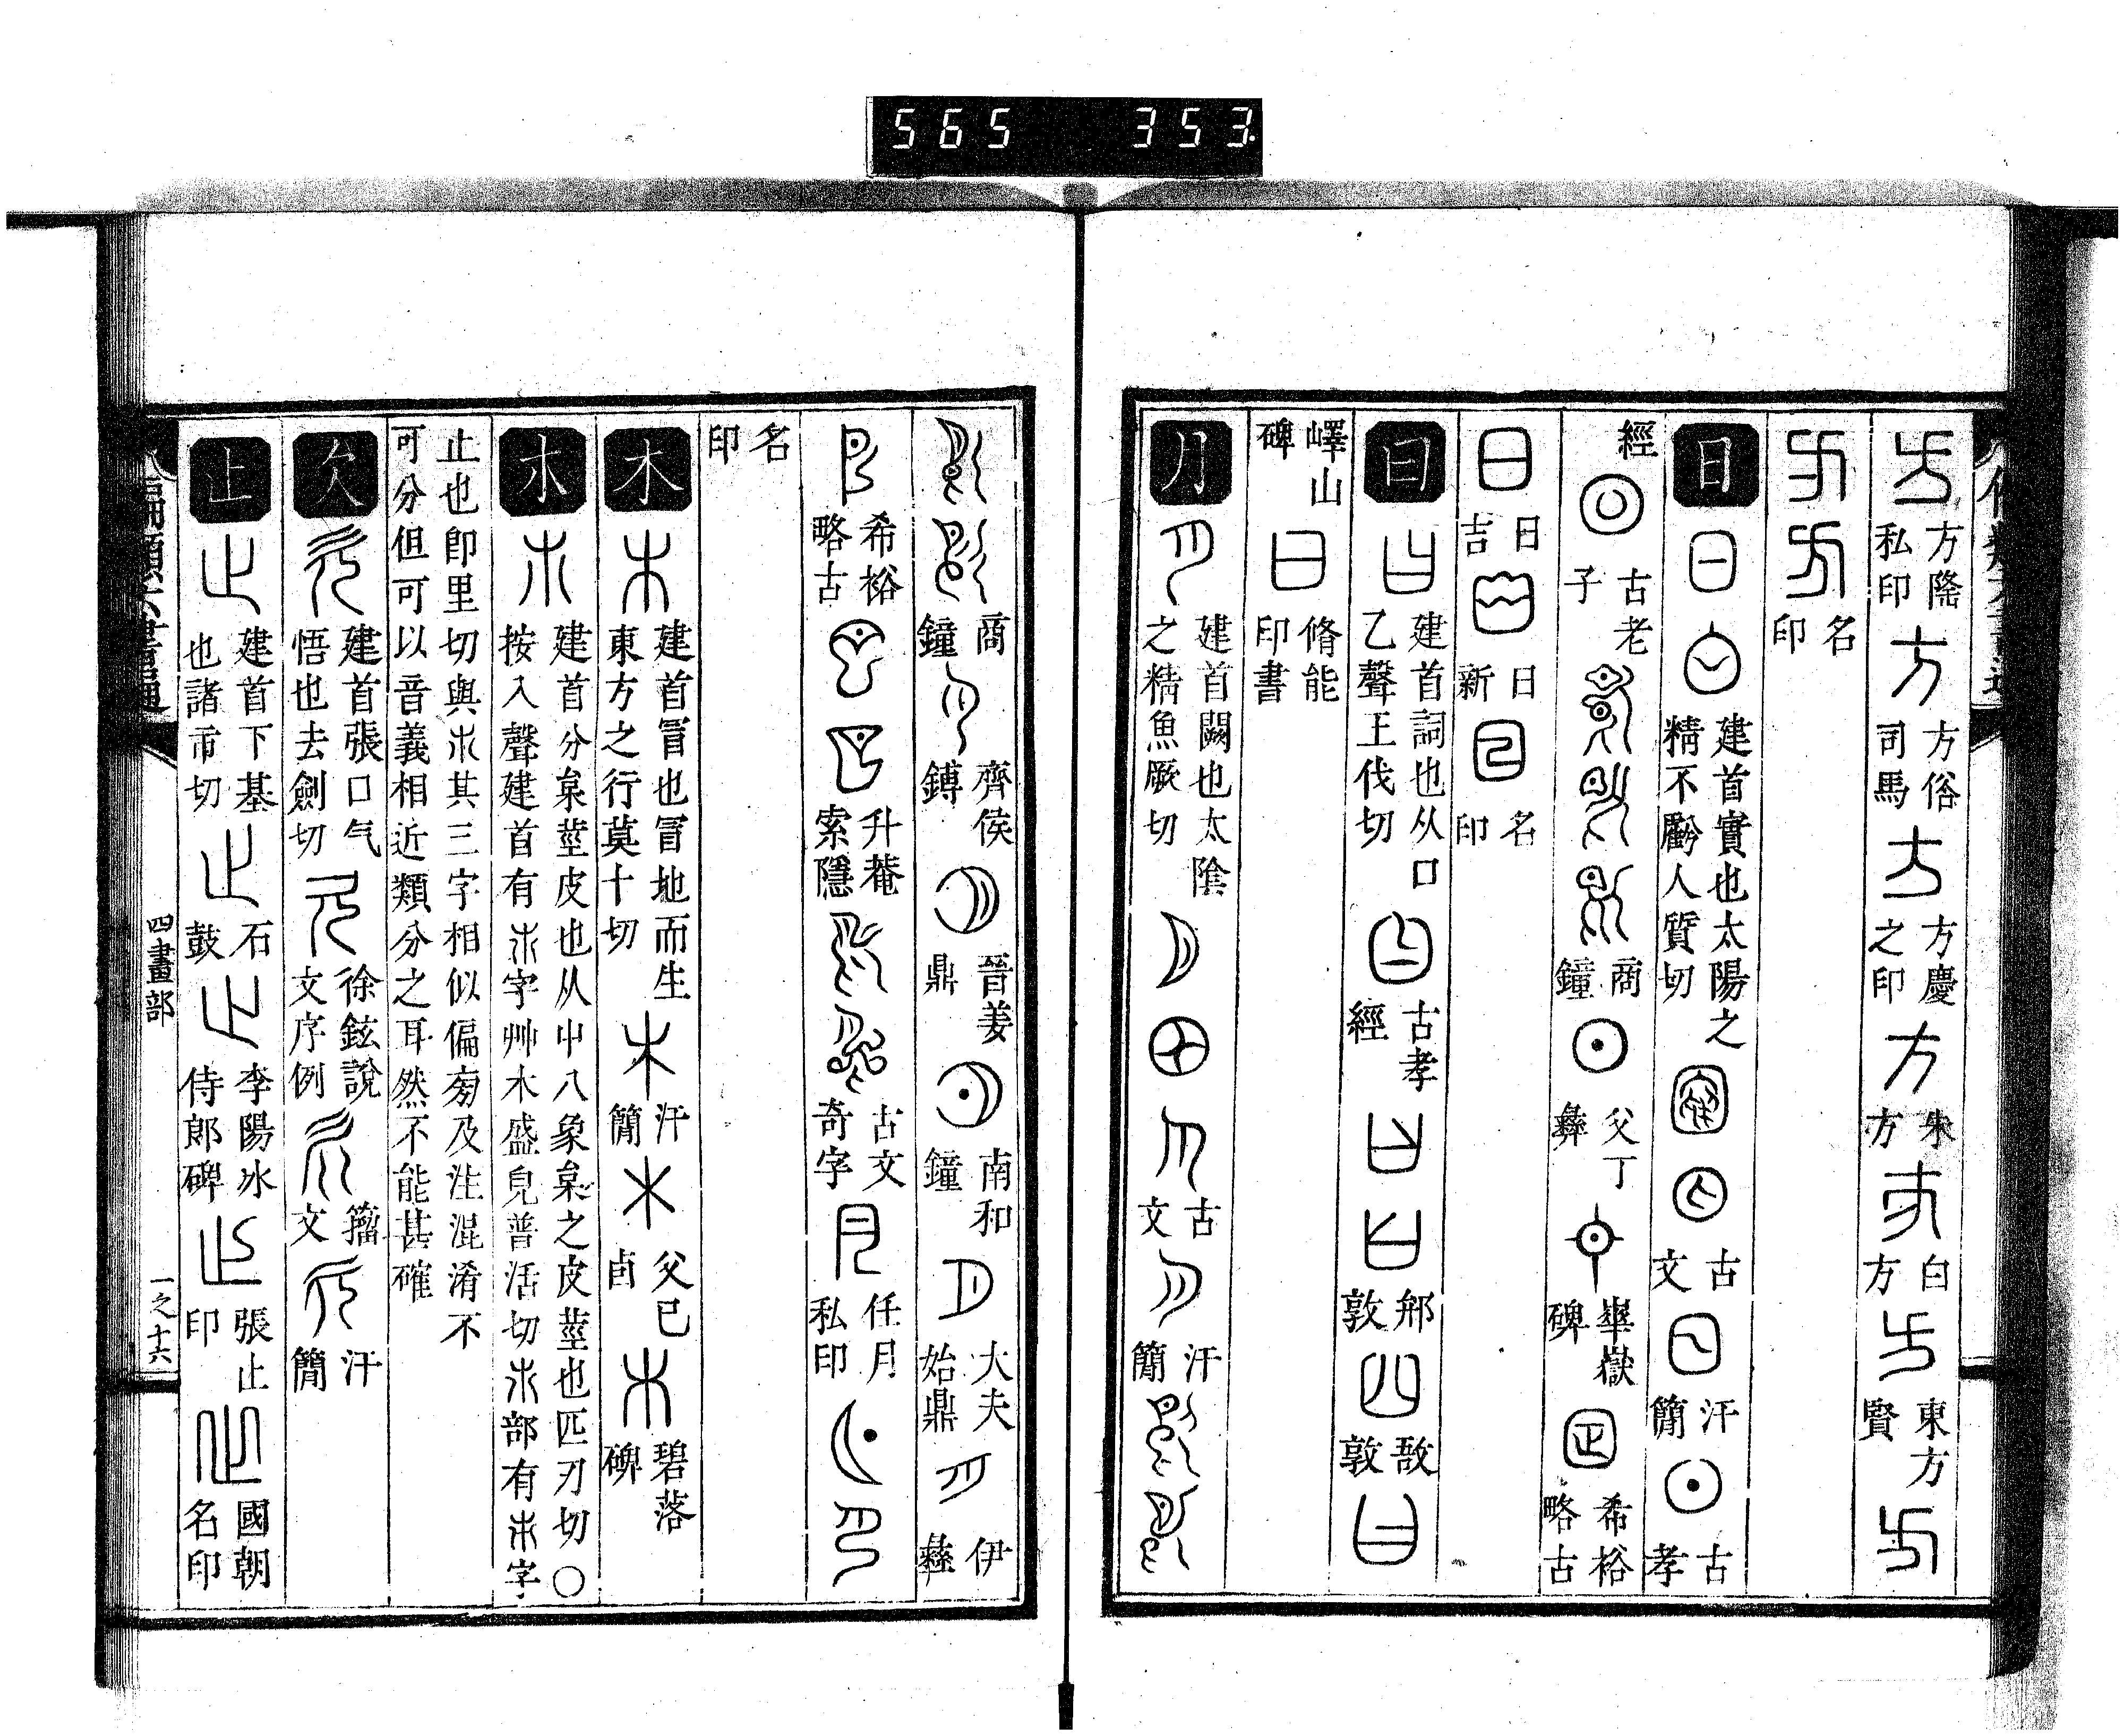 565 353
方隆私印 方俗司馬 方慶之印 朱方 白方 東方賢
名印
日 建首實也太陽之精不虧人質切 古文 汗簡 古孝
經 古老子 商鐘 父丁彝 華嶽碑 希裕略古
日吉 日新 名印
曰 建首詞也从口乙聲王伐切 古孝經 䢵敦 敔敦
嶧山碑 脩能印書
月 建首闕也太陰之精魚厥切 古文 汗簡
商鐘 齊侯鎛 晉姜鼎 南和鐘 大夫始鼎 伊彝
希裕略古 升菴索隱 古文奇字 任月私印
名印
木 建首冒也冒地而生東方之行莫卜切 汗簡 父已卣 碧落碑
𣎳 建首分枲莖皮也从屮八象枲之皮莖也匹刃切〇按入聲建首有𣎵字艸木盛皃普活切𣎵部有𠂔字
止也即里切與𣎳其三字相似偏㫄及注混淆不可分但可以音義相近類分之耳然不能甚確
欠 建首張口气悟也去劍切 徐鉉說文序例 籀文 汗簡
止 建首下基也諸市切 石鼓 李陽冰侍郎碑 張止印 國朝名印
偏類六書通
四畫部
一之十六